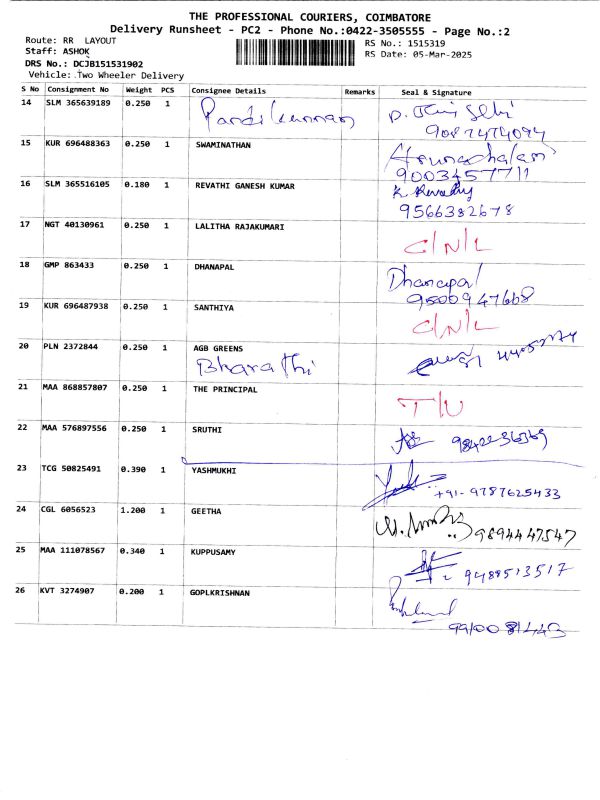 THE PROFESSIONAL COURIERS, COIMBATORE
Delivery Runsheet - PC2 - Phone No.:0422-3505555 - Page No.:2
Route: RR LAYOUT
RS No.: 1515319
Staff: ASHOK
RS Date: 05-Mar-2025
DRS No.: DCJB151531902
Vehicle: Two Wheeler Delivery
S No Consignment No Weight PCS Consignee Details Remarks Seal & Signature
14 SLM 365639189 0.250 1
15 KUR 696488363 0.250 1 SWAMINATHAN Arunachalam
9003457711
16 SLM 365516105 0.180 1 REVATHI GANESH KUMAR K. Revathy
9566382678
17 NGT 40130961 0.250 1 LALITHA RAJAKUMARI C/N/L
18 GMP 863433 0.250 1 DHANAPAL Dhanapal
9500947668
19 KUR 696487938 0.250 1 SANTHIYA C/N/L
20 PLN 2372844 0.250 1 AGB GREENS
Bharathi
21 MAA 868857807 0.250 1 THE PRINCIPAL T/U
22 MAA 576897556 0.250 1 SRUTHI
23 TCG 50825491 0.390 1 YASHMUKHI
+91-9787625433
24 CGL 6056523 1.200 1 GEETHA
9894447547
25 MAA 111078567 0.340 1 KUPPUSAMY 9488513517
26 KVT 3274907 0.200 1 GOPLKRISHNAN